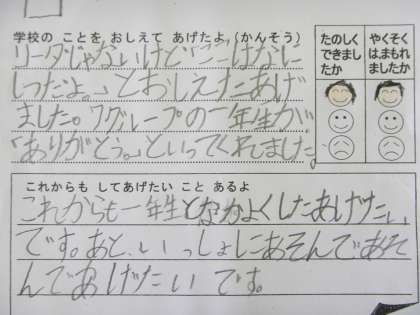 学校の ことを おしえて あげたよ (かんそう)
リーダじゃないけど「ここはなに
しつだよ。」とおしえてあげ
ました。7グループの一年生が、
「ありがとう。」といってくれました。
たのしく できまし たか
やくそく はまもれ ましたか
これからも してあげたい こと あるよ
これからも一年生となかよくしたあげたい
です。あと、いっしょにあそんであそ
んであげたい です。